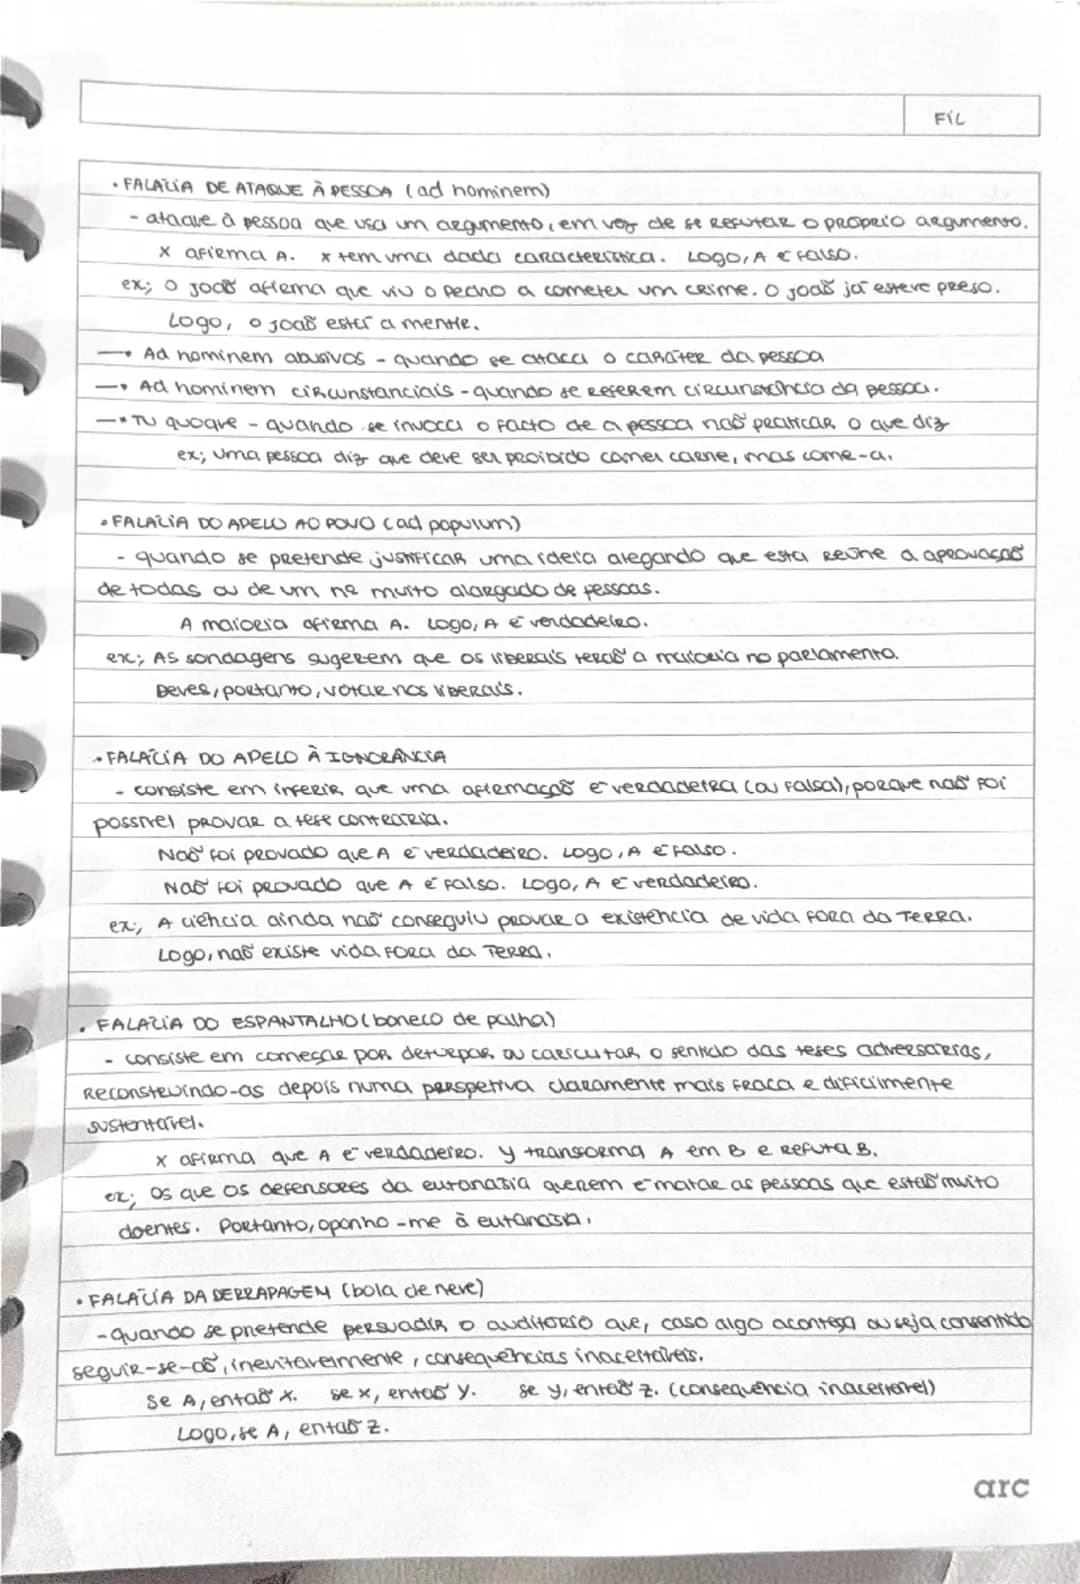 FIL
• FALÁCIA DE ATAQUE À PESSOA (ad hominem)
- ataque à pessoa que usa um argumento, em vez de se refutar o próprio argumento.
X afirma A. X tem uma dada característica. Logo, A é falso.
ex; O João afirma que viu o Pedro a cometer um crime. O João já esteve preso.
Logo, o João está a mentir.
→ Ad hominem abusivos - quando se ataca o caráter da pessoa
→ Ad hominem circunstanciais - quando se referem circunstância da pessoa.
→ TU quoque - quando se invoca o facto de a pessoa não praticar o que diz
ex; Uma pessoa diz que deve ser proibido comer carne, mas come-a.
• FALÁCIA DO APELO AO POVO (ad populum)
- quando se pretende justificar uma ideia alegando que esta reúne a aprovação
de todas ou de um nº muito alargado de pessoas.
A maioria afirma A. Logo, A é verdadeiro.
ex; As sondagens sugerem que os liberais terão a maioria no parlamento.
Deves, portanto, votar nos liberais.
• FALÁCIA DO APELO À IGNORÂNCIA
- consiste em inferir que uma afirmação é verdadeira (ou falsa), porque não foi
possível provar a tese contrária.
Não foi provado que A é verdadeiro. Logo, A é falso.
Não foi provado que A é falso. Logo, A é verdadeiro.
ex; A ciência ainda não conseguiu provar a existência de vida fora da Terra.
Logo, não existe vida fora da Terra.
• FALÁCIA DO ESPANTALHO (boneco de palha)
- consiste em começar por deturpar ou caricutar o sentido das teses adversárias,
reconstruindo-as depois numa perspetiva claramente mais fraca e dificilmente
sustentável.
X afirma que A é verdadeiro. Y transforma A em B e refuta B.
ex; Os que os defensores da eutanásia querem é matar as pessoas que estão muito
doentes. Portanto, oponho-me à eutanásia.
• FALÁCIA DA DERRAPAGEM (bola de neve)
- quando se pretende persuadir o auditório que, caso algo aconteça ou seja consentido
seguir-se-ão, inevitavelmente, consequências inaceitáveis.
Se A, então X. Se X, então Y. Se Y, então Z. (consequência inaceitável)
Logo, se A, então Z.
arc